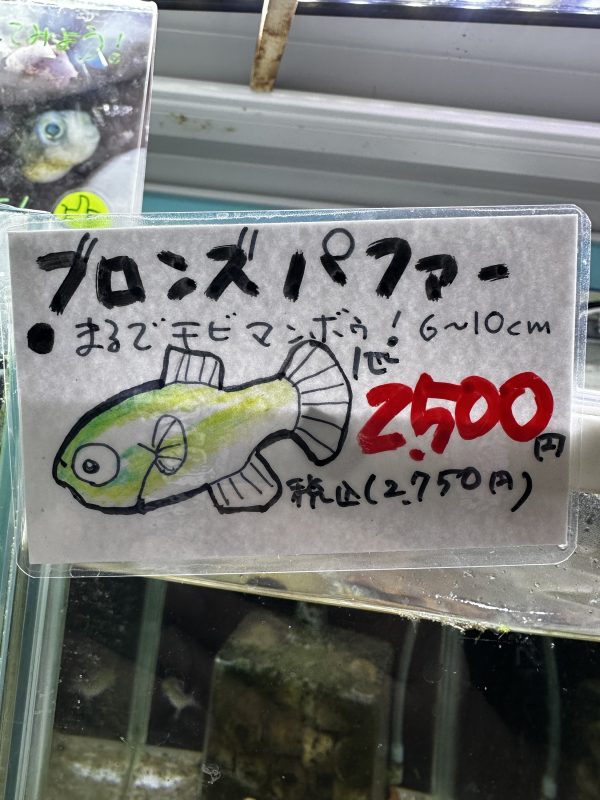 てみよう!
ブロンズパファー
● まるでチビマンボウ! 6~10cm
1匹
2,500円
税込(2,750円)